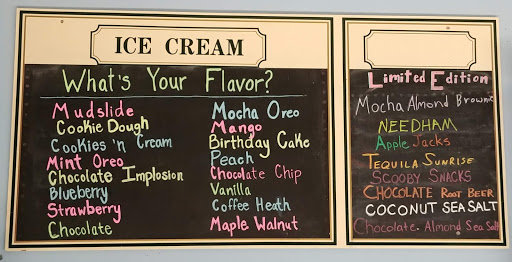 ICE CREAM
What's Your Flavor?
Mudslide
Cookie Dough
Cookies 'n Cream
Mint Oreo
Chocolate Implosion
Blueberry
Strawberry
Chocolate
Mocha Oreo
Mango
Birthday Cake
Peach
Chocolate Chip
Vanilla
Coffee Heath
Maple Walnut
Limited Edition
Mocha Almond Brownie
NEEDHAM
Apple Jacks
TEQUILA SUNRISE
SCOOBY SNACKS
CHOCOLATE ROOT BEER
COCONUT SEA SALT
Chocolate. Almond Sea Salt